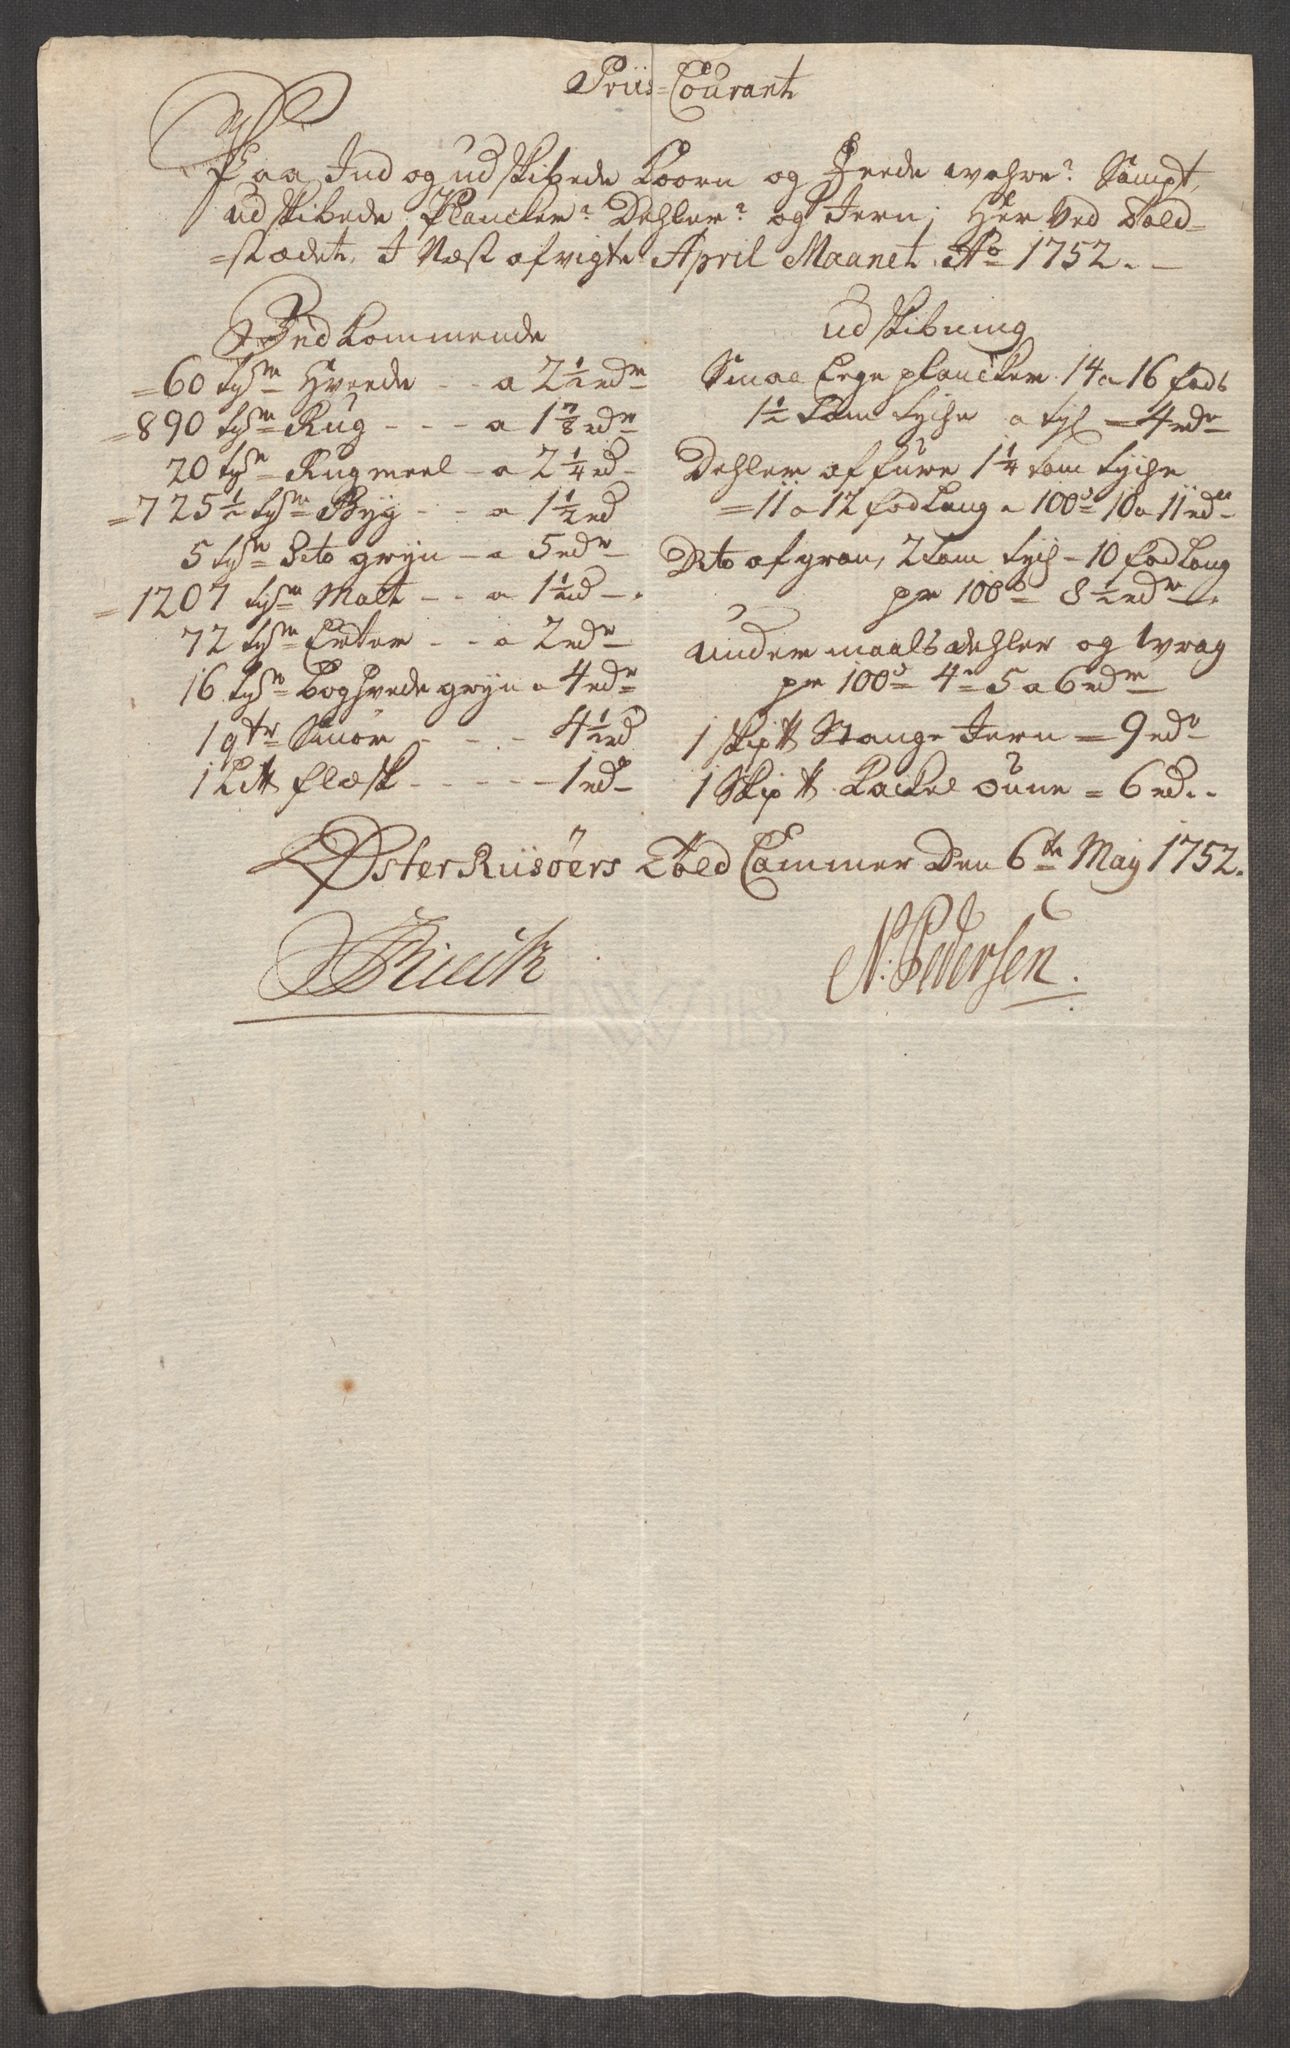 Priis-Courant
Paa Ind og udskibede Koorn og Feede wahre? Sampt,
udskibede Plancker? Dehler? og Jern; Her Ved Told=
=stædet, I Næst afvigte April Maanet. Ao 1752.
Indkommende
=60 tyßr Hvede - - a 2 1/2 rdr
=890 tyßr Rug - - - a 1 7/8 rdr
20 tyßr Rugmeel - a 2 1/4 rd
=725 1/2 tyßr Byg - - a 1 1/2 rd
5 tyßr Dito gryn - a 5 rdr
=1207 tyßr Malt - - a 1 1/2 rd
72 tyßr Erter - - a 2 rdr
16 tyßr Boghvede gryn a 4 rdr
1 qtr Smör - - - - 4 1/2 rd
1 Li℔ flæsk - - - - - 1 rdr
udskibning
Smaa Ege plancker 14 a 16 fods
1 1/2 tom tyche a tyl = 4 rdr
Dehler af füre 1 1/4 tom tyche
=11 a 12 fod Lang a 100d 10 a 11 rdr
Dito af gran, 2 tom tych - 10 fod Lang
pr 100d 8 1/2 rdr
under maals dehler og wrag
pr 100d 4 a 5 a 6 rdr
1 Skip℔ Stange Jern = 9 rdr
1 Skip℔ Kackel oune = 6 rd.
Øster Riisöers Told Cammer Den 6te Maij 1752.
N: Pedersen.